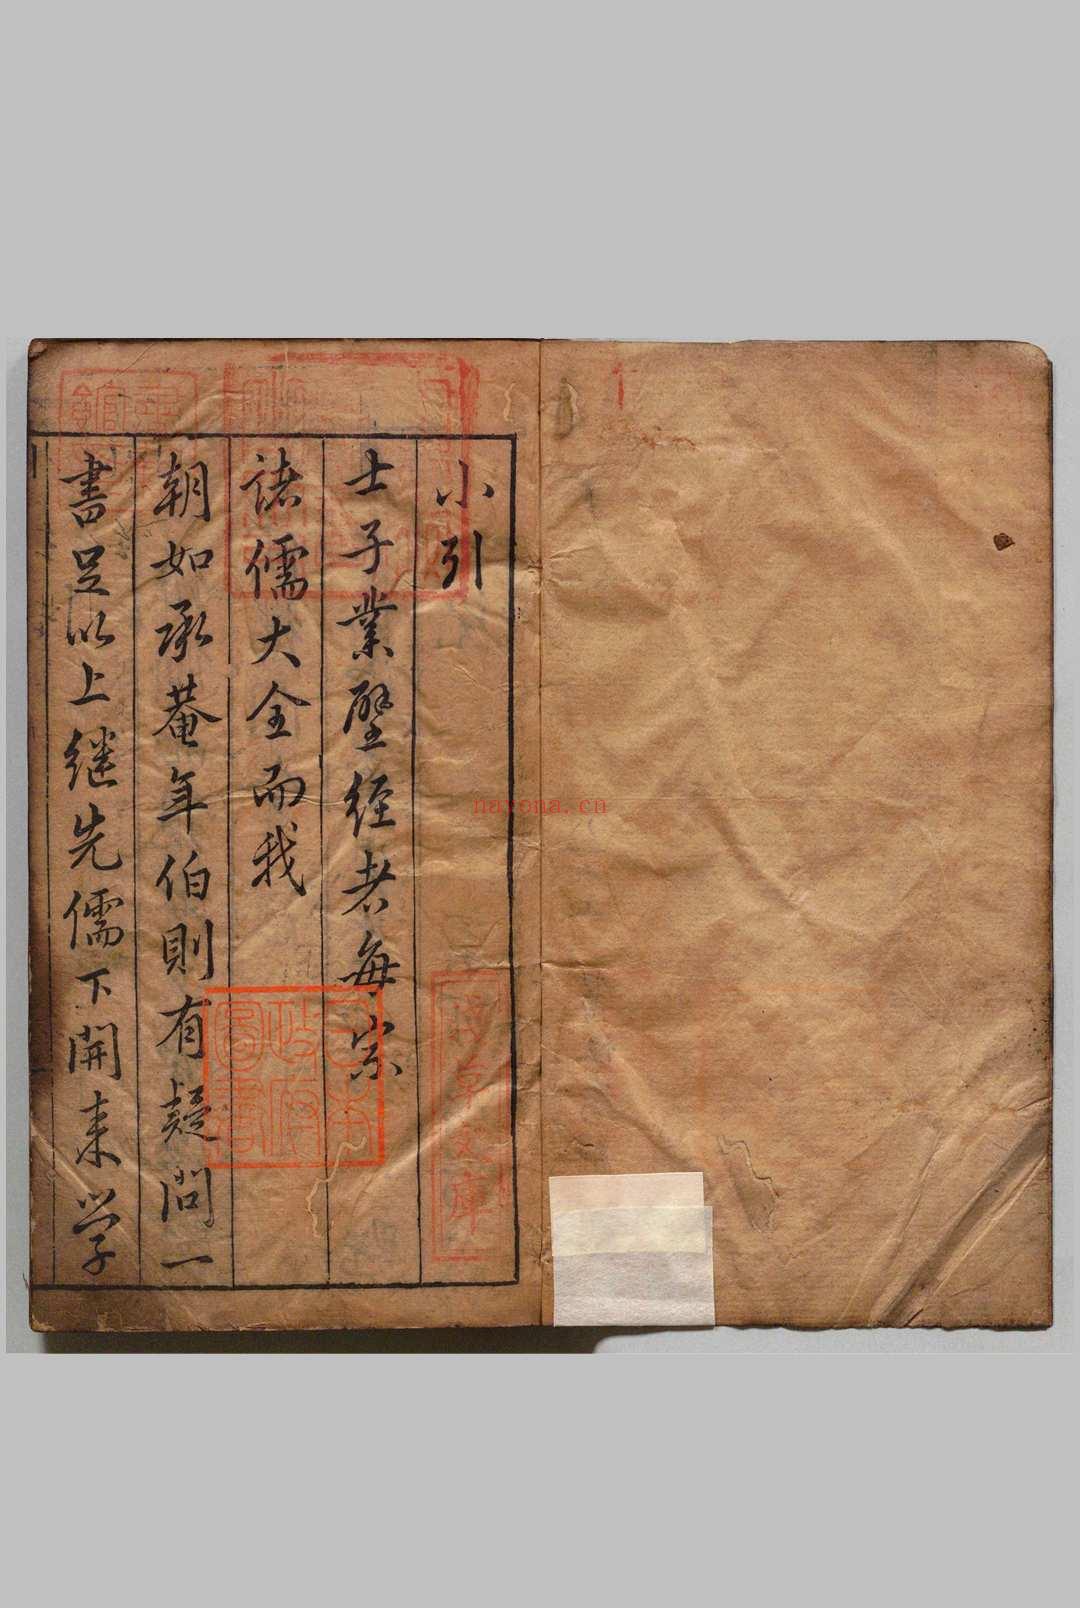 小引
士子業壁經者每宗
諸儒大全而我
朝如承菴年伯則有疑問一
書足以上继先儒下開来学
日本政府圖書
nayona.cn